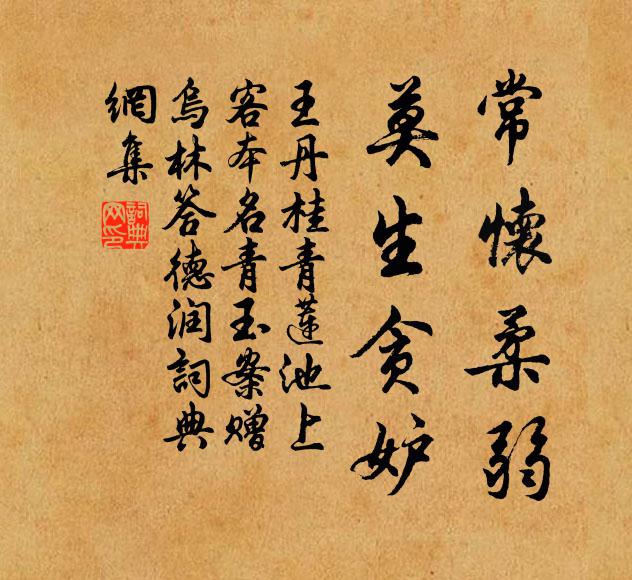 常懷柔弱
莫生貪妒
王丹桂青蓮池上
客本名青玉案贈
烏林答德润詞典
網集
詞典網印